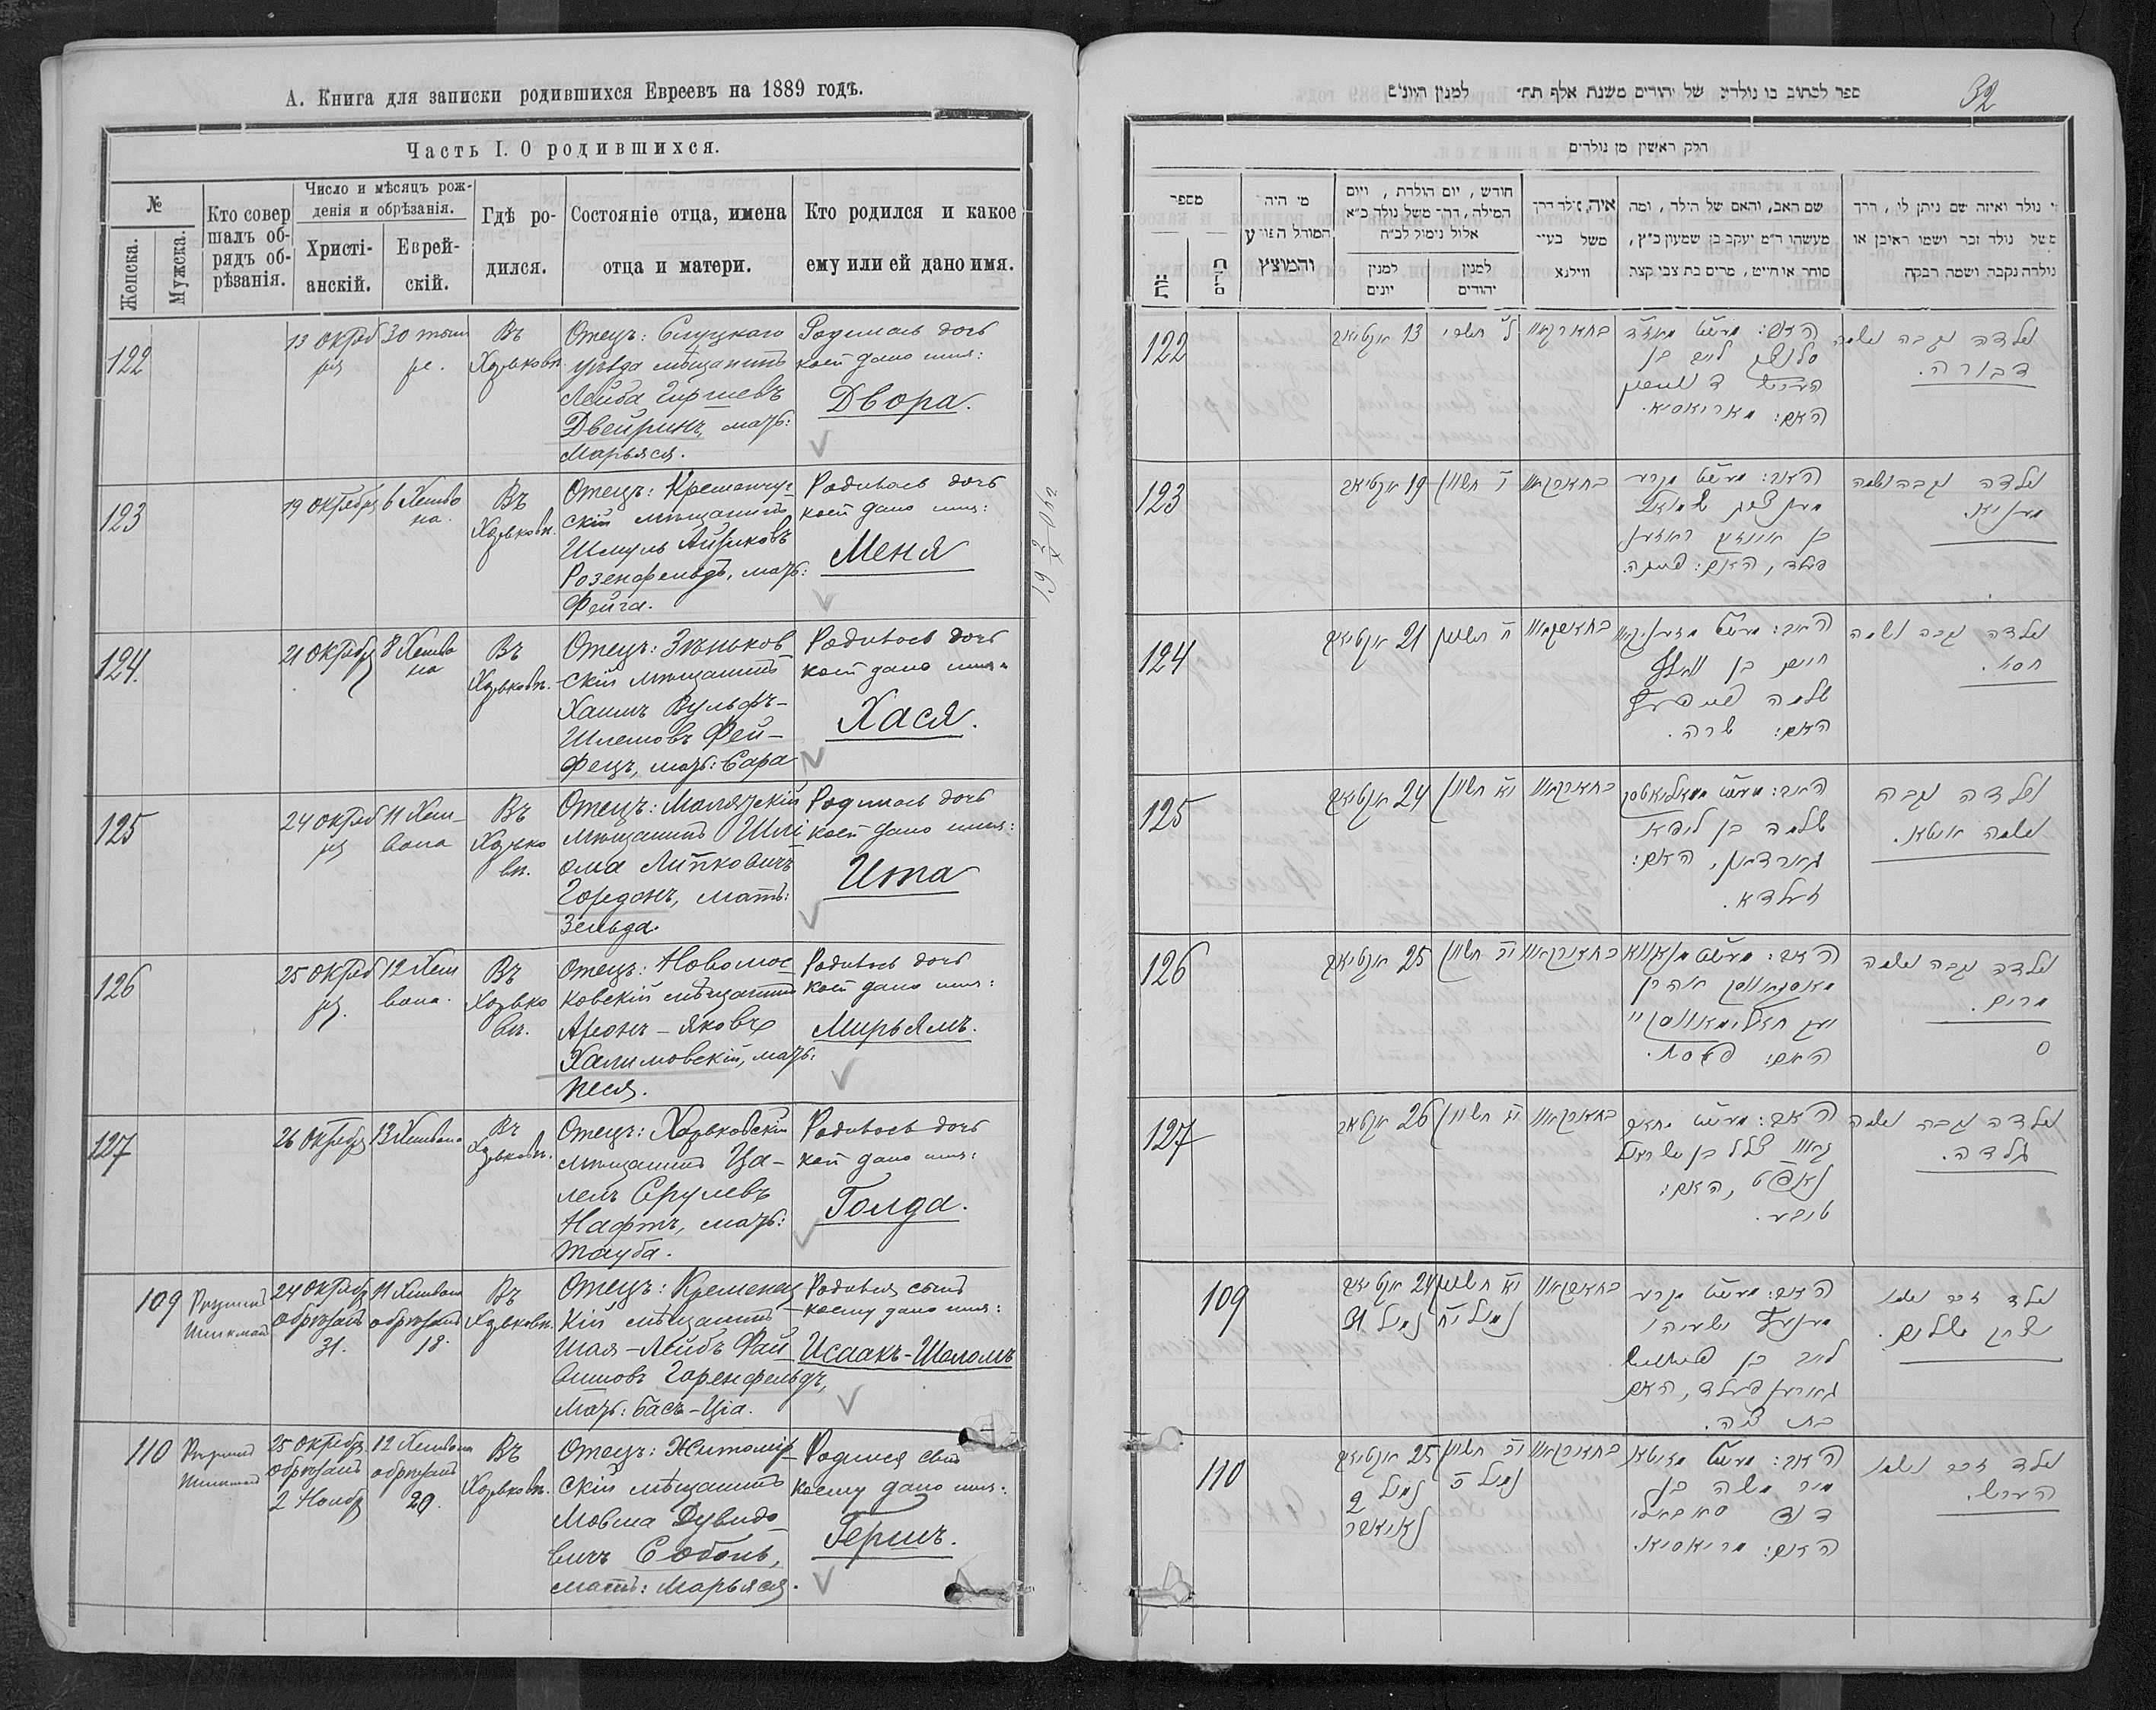 А. Книга для записки родившихся Евреевъ на 1889 годъ.
Часть I. О родившихся.
№
Женска.
Мужска.
Кто совер
шалъ об-
рядъ об-
рѣзанія.
Число и мѣсяцъ рож-
денія и обрѣзанія.
Христі-
анскій.
Еврей-
скій.
Гдѣ ро-
дился.
Состояніе отца, имена
отца и матери.
Кто родился и какое
ему или ей дано имя.
122
13 Октяб
ря
30 тиш
ре.
Въ
Харьковѣ.
Отецъ: Слуцкаго
уѣзда мѣщанинъ
Лейба Гиршевъ
Двейринъ, мать:
Марьяся.
Родилась дочь
коей дано имя:
Двора.
123
19 Октября
6 Хешво
на.
Въ
Харьковѣ.
Отецъ: Кременчуг-
скій мѣщанинъ
Шмуль
Розенфельдъ, мать:
Фейга.
Родилась дочь
коей дано имя:
Меня
124.
21 Октября
8 Хешво
на
Въ
Харьковѣ.
Отецъ: Зѣньков-
скій мѣщанинъ
Хаимъ Вульфъ-
Шлемовъ Фей-
фецъ, мать: Сара
Родилась дочь
коей дано имя:
Хася.
125
24 Октяб
ря
11 Хеш-
вона
Въ
Харько
вѣ.
Отецъ:
мѣщанинъ Шлі
ома Липковичъ
Гордонъ, мать:
Зельда.
Родилась дочь
коей дано имя:
Ита
126
25 Октяб
ря.
12 Хеш
вона.
Въ
Харько
вѣ.
Отецъ: Новомос-
ковскій мѣщанинъ
Аронъ-Яковъ
Халимовскій, мать:
Песя.
Родилась дочь
коей дано имя:
Мирьямъ.
127
26 Октября
13 Хешвона
Въ
Харьковѣ.
Отецъ: Харьковскій
мѣщанинъ Ца-
лелъ Срулевъ
Нафтъ, мать:
Тауба.
Родилась дочь
коей дано имя:
Голда.
109
24 Октября
обрѣзанъ
31.
11 Хешвона
обрѣзанъ
18.
Въ
Харьковѣ.
Отецъ: Кременец
кій мѣщанинъ
Шая-Лейбъ Фай-
вишовъ Горенфельдъ,
Мать: Бася-Ціа.
Родился сынъ
коему дано имя:
Исаакъ-Шоломъ
110
25 Октября
обрѣзанъ
2 Ноябр
12 Хешвона
обрѣзанъ
20.
Въ
Харьковѣ.
Отецъ: Житомір-
скій мѣщанинъ
Мовша Дувидо-
вичъ Соболь,
мать: Марьяся.
Родился сынъ
коему дано имя:
Гершъ.
32
ספר לכתוב בו נולדים של יהודים משנת אלף תת״ למנין היונים
חלק ראשון מן נולדים
מספר
מי היה
המוהל הפורע
והמוצץ
חודש, יום הולדת, ויום
המילה, דה״ משל נולד כ״א
אלול נימול לכ״ח
למנין
יונים
למנין
יהודים
איה נולד דרך
משל בעיר
ווילנא
שם האב, והאם של הילד, ומה
מעשהו ר״מ יעקב בן שמעון כ״ץ,
סוחר או חייט, מרים בת צבי קצת
מי נולד ואיזה שם ניתן לו, דרך
משל נולד זכר ושמו ראובן או
נולדה נקבה ושמה רבקה
122
13 אקטיאבר
ל תשרי
בחארקאוו
האב:
לייב בן
הירש
האם: מאריאסיא.
נולדה נקבה ושמה
דבורה.
123
19 אקטיאבר
ו חשון
בחארקאוו
האב:
שמואל
בן
פעלד, האם: פייגה.
נולדה נקבה ושמה
מעניא.
124
21 אקטיאבר
ח חשון
בחארקאוו
האב:
חיים בן וואלף
שלמה פייפעץ
האם: שרה.
נולדה נקבה ושמה
חסי.
125
24 אקטיאבר
יא חשון
בחארקאוו
האב:
שלמה בן ליפא
גארדאן, האם:
זעלדא.
נולדה נקבה
ושמה איטא.
126
25 אקטיאבר
יב חשון
בחארקאוו
האב:
מאסקאווסקי אהרן
יעקב חאלימאווסקי
האם: פעסי.
נולדה נקבה ושמה
מרים.
127
26 אקטאבר
יג חשון
בחארקאוו
האב:
קאוו צלל בן ישראל
נאפט, האם:
טויבע.
נולדה נקבה ושמה
גולדה.
109
24 אקטיאבר
נימול 31
יא חשון
נימול יח
בחארקאוו
האב:
מענעץ ישעיהו
לייב בן פייוויש
גארענפעלד, האם
בת ציה.
נולד זכר ושמו
יצחק שלום.
110
25 אקטיאבר
נימול 2
נאיאבר
יב חשון
נימול כ
בחארקאוו
האב:
משה בן
דוד סאבאלי
האם: מריאסיא.
נולד זכר ושמו
הערש.